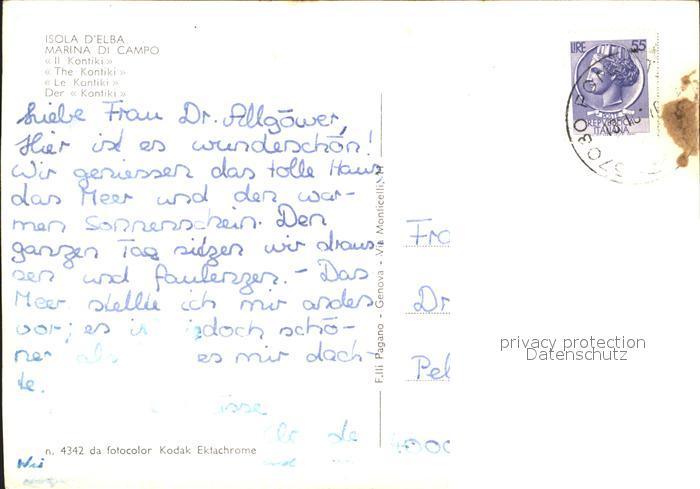 ISOLA D'ELBA
MARINA DI CAMPO
« Il Kontiki »
« The Kontiki »
« Le Kontiki »
Der « Kontiki »
Liebe Frau Dr. Allgöwer,
Hier ist es wunderschön!
Wir geniessen das tolle Haus
das Meer und den war-
men Sonnenschein. Den
ganzen Tag sitzen wir draus-
sen und faulenzen. - Das
Meer stellte ich mir anders
vor; es jedoch schö-
ner als es mir dach-
te.
n. 4342 da fotocolor Kodak Ektachrome
F.lli Pagano - Genova - Via Monticelli
LIRE 55
POSTE
REPUBBLICA
ITALIANA
57030
Fra
Dr
Pel
4000
privacy protection
Datenschutz